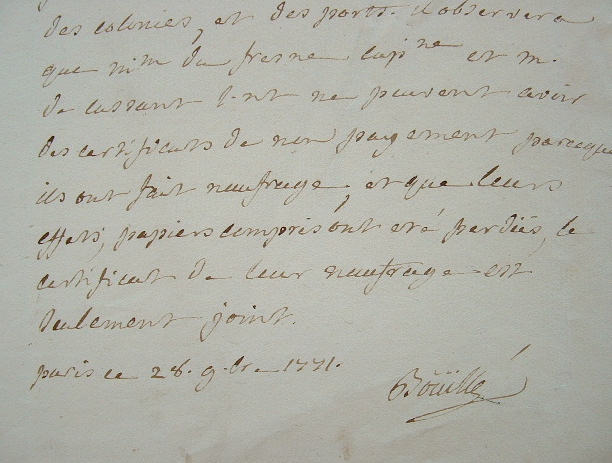 des colonies, et des ports. il observera
que mrs du fresne cap.ne et m.
de cassant l-nt ne peuvent avoir
des certificats de non payement parceque
ils ont fait naufrage, et que leurs
effets, papiers compris ont eté perdus, le
certificat de leur naufrage est
seulement joint.
paris ce 28. 9.bre 1771.
Boüillé